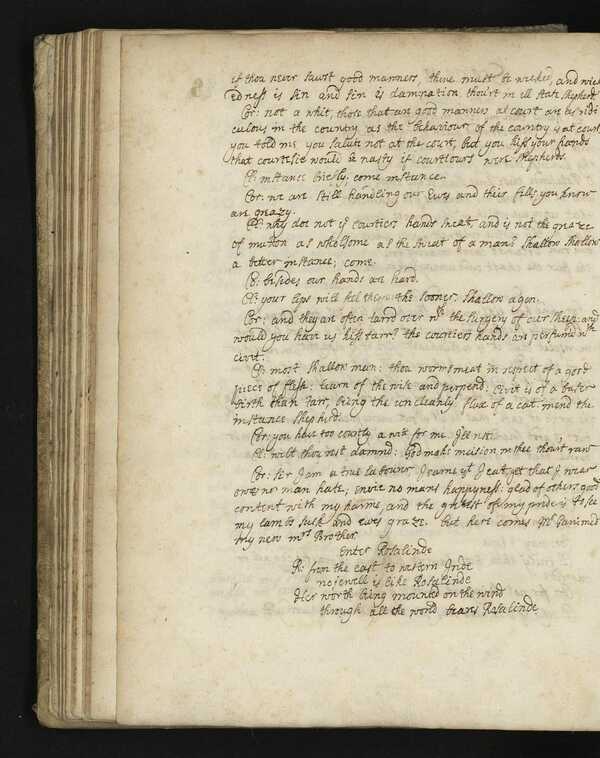 if thou never sawst good manners, thine must be wicked, and wick
edness is sin and sin is damnation thou'rt in ill state shepherd
Cor: not a whit, those that are good manners at court are as ridi
culous in the country as the behaviour of the country is at court
you told me you salute not at the court, but you kiss your hands
that courtesie would be nasty if courtiours were shepherds.
Cl: instance briefly, come instance.
Cor: we are still handling our Ewes and their fells you know
are greazy.
Cl: why doe not yr courtiers hands sweat, and is not the greaze
of mutton as wholsome as the sweat of a man? Shallow shallow
a better instance, come.
Co: besides our hands are hard.
Cl: your lips will feel them the sooner. Shallow agen.
Cor: and they are often tarrd over wth the surgery of our sheep: and
would you have us kiss tarr? the courtiers hands are perfumd wth
civit.
Cl: most shallow man: thou wormsmeat in respect of a good
piece of flesh: learn of the wise and perpend: Civit is of a baser
birth than tarr, being the uncleanly flux of a cat. mend the
instance shepherd.
Cor: you have too courtly a wit for me. I'le rest.
Cl: wilt thou rest damned: God make incision in thee thou'rt raw
Cor: Sir I am a true labourer, I earne yt I eat, get that I wear
owe no man hate, envie no mans happyness: glad of others good
content with my harme, and the greatest of my pride is to see
my lambs suck and ewes graze. but here comes Mr Ganimed
my new mrs Brother
Enter Rosalinde
R: from the east to western Inde
no jewell is like Rosalinde
Her worth being mounted on the wind
through all the world bears Rosalinde